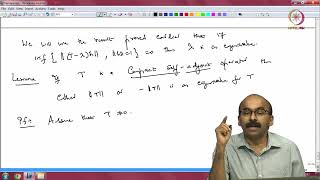 We will use the result proved earlier that if
inf { ‖(T-λ)x‖ , ‖x‖=1} = 0 then λ is an eigenvalue.
Lemma If T is a Compact self-adjoint operator then
either ‖T‖ or -‖T‖ is an eigenvalue for T
Pf: Assume that T ≠ 0.